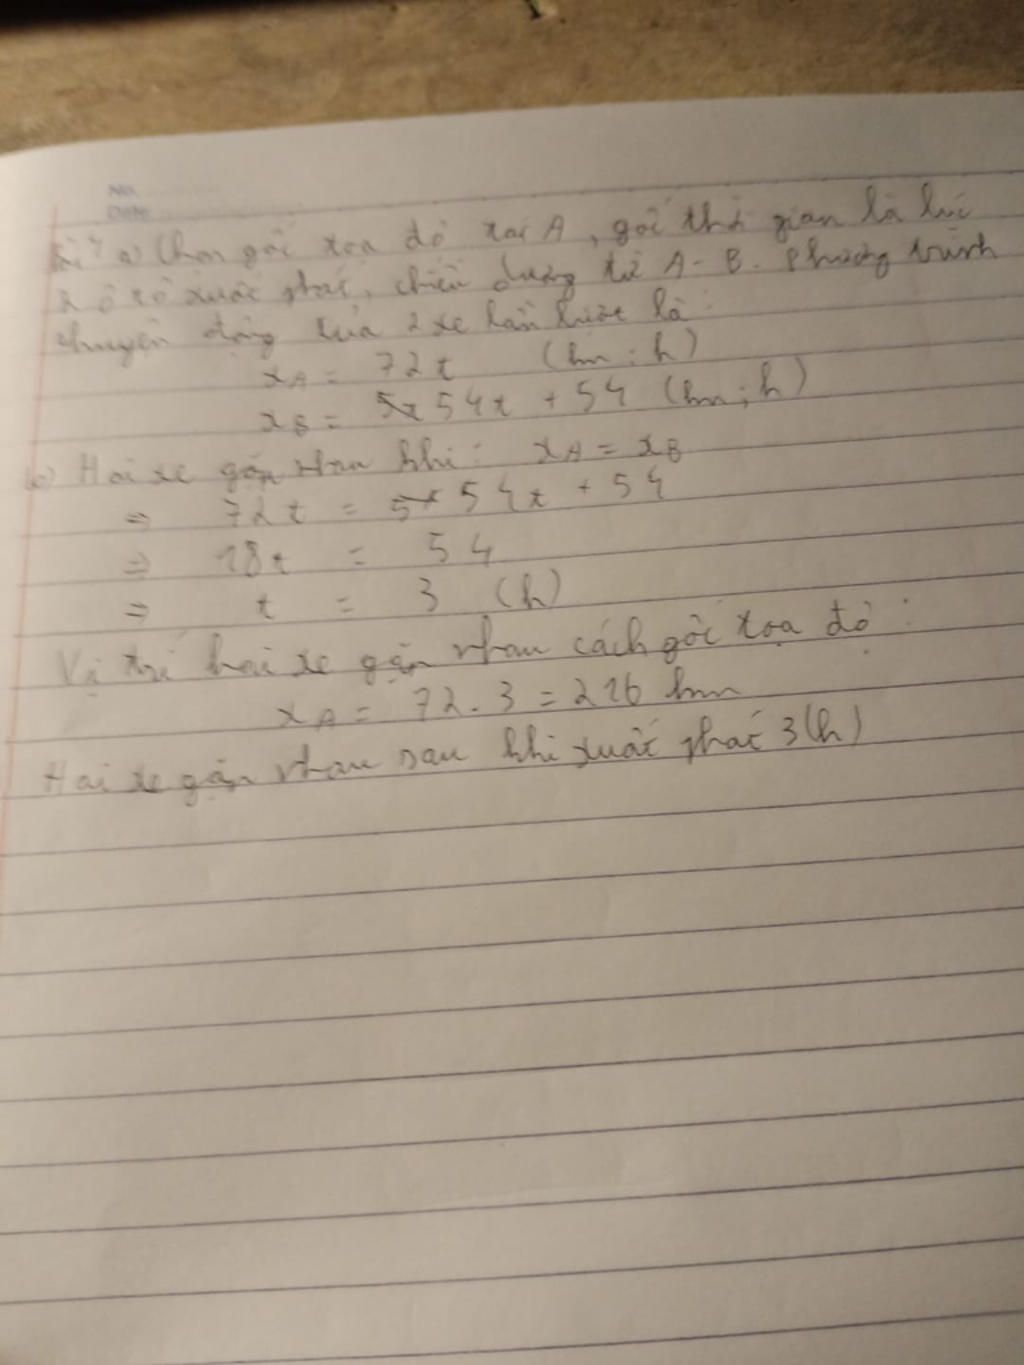 No.
Date
Bài 4 a) Chọn gốc tọa độ tại A, gốc thời gian là lúc
2 ô tô xuất phát, chiều dương từ A - B. Phương trình
chuyển động của 2 xe lần lượt là:
xA = 72t (km ; h)
xB = 54t + 54 (km ; h)
b) Hai xe gặp nhau khi: xA = xB
=> 72t = 54t + 54
=> 18t = 54
=> t = 3 (h)
Vị trí hai xe gặp nhau cách gốc tọa độ:
xA = 72.3 = 216 km
Hai xe gặp nhau sau khi xuất phát 3(h)